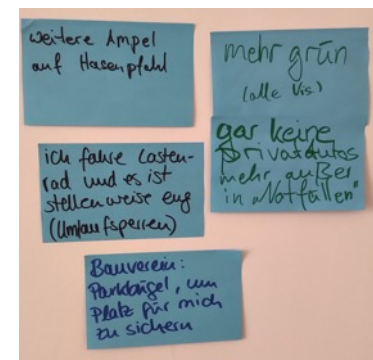 weitere Ampel
auf Hasenpfuhl
mehr grün
(alle Vis.)
gar keine
privatautos
mehr außer
in „Notfällen"
ich fahre Lasten-
rad und es ist
stellenweise eng
(Umlaufsperren)
Bauverein:
Parkbügel, um
Platz für mich
zu sichern